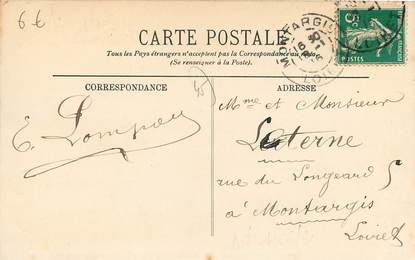 6€
CARTE POSTALE
Tous les Pays étrangers n'acceptent pas la Correspondance au
(Se renseigner à la Poste).
MONTARGIS
5c
POSTES
CORRESPONDANCE
ADRESSE
45
E.
Mme et Monsieur
Laterne
rue du Longeard 5
à Montargis
Loiret